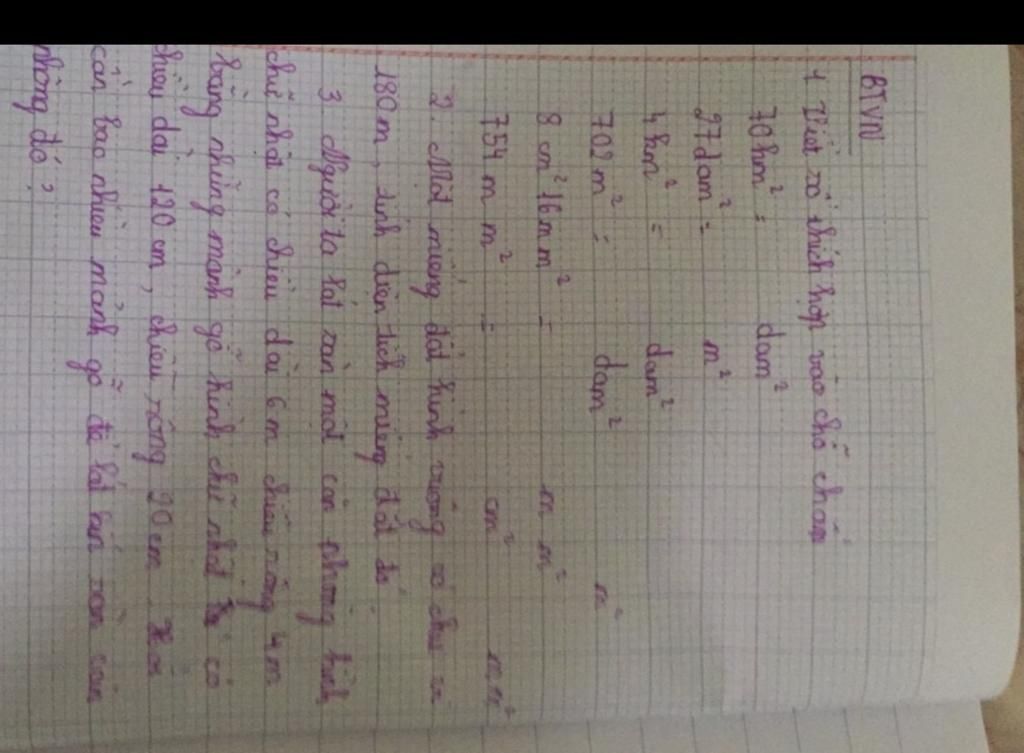 BTVN
1 Viết số thích hợp vào chỗ chấm
70 hm² = dam²
27 dam² = m²
4 hm² = dam²
702 m² = dam² m²
8 cm² 16 m m² = m m²
754 m m² = cm² m m²
2. Một miếng đất hình vuông có chu vi
180 m, tính diện tích miếng đất đó
3. Người ta lát sàn một căn phòng hình
chữ nhật có chiều dài 6 m chiều rộng 4 m
bằng những mảnh gỗ hình chữ nhật có
chiều dài 120 cm, chiều rộng 20 cm. Hỏi
cần bao nhiêu mảnh gỗ để lát kín sàn căn
phòng đó?